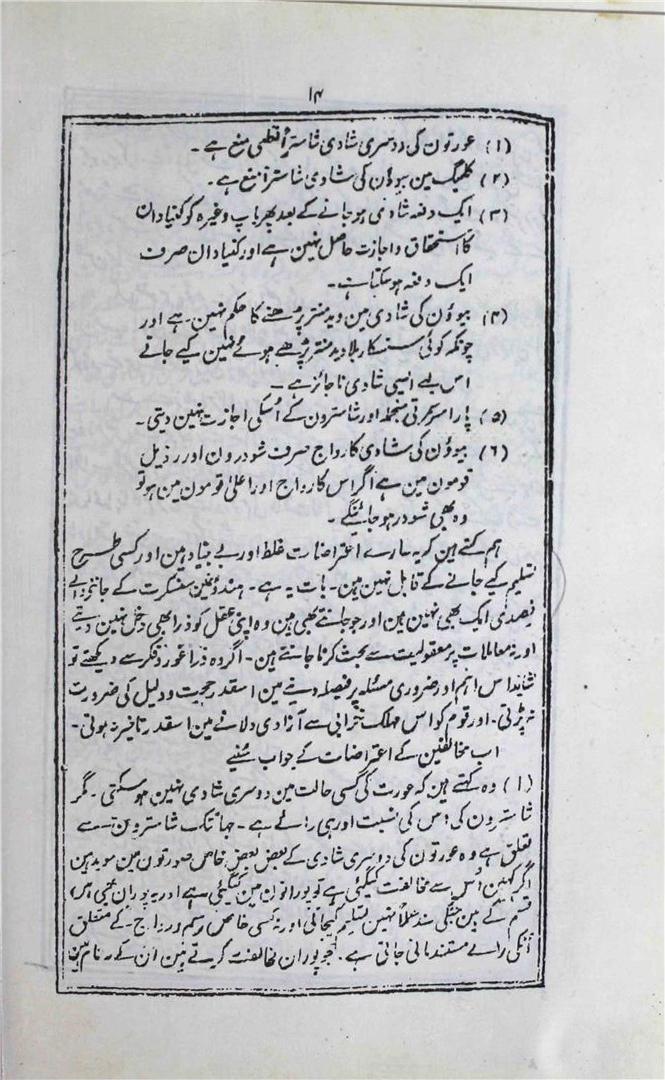 ۱۴
(۱) عورتون کی دوسری شادی شاستراً قطعی منع ہے۔
(۲) کلیگ مین بیوان کی شادی شاستراً منع ہے۔
(۳) ایک دفعہ شادی ہوجانے کے بعد پھر باپ وغیرہ کو کنیادان
کا استحقاق و اجازت حاصل نہین ہے اور کنیادان صرف
ایک دفعہ ہوسکتا ہے۔
(۴) بیوؤن کی شادی مین وید منتر پڑھنے کا حکم نہین۔ ہے اور
چونکہ کوئی سنسکار بلا وید منتر پڑھے ہوئے نہین کیے جاتے
اس لیے ایسی شادی ناجائز ہے۔
(۵) پاراسمرتی منجملہ اور شاسترون کے اُسکی اجازت نہین دیتی۔
(۶) بیوؤن کی شادی کا رواج صرف شودرون اور رذیل
قومون مین ہے اگر اس کا رواج اور اعلیٰ قومون مین ہو تو
وہ بھی شودر ہوجائینگے۔
ہم کہتے ہین کہ یہ سارے اعتراضات غلط اور بے بنیاد ہین اور کسی طرح
تسلیم کیے جانے کے قابل نہین ہین۔ بات یہ ہے۔ ہندوؤن مین سنسکرت کے جاننے والے
فیصدی ایک بھی نہین ہین اور جو جانتے بھی ہین وہ اپنی عقل کو ذرا بھی دخل نہین دیتے
اور نہ معاملات پر معقولیت سے بحث کرنا چاہتے ہین۔ اگر وہ ذرا غور و فکر سے دیکھتے تو
شاید اس اہم اور ضروری مسئلہ پر فیصلہ دینے مین اسقدر حجت و دلیل کی ضرورت
نہ پڑتی۔ اور قوم کو اس مہلک خرابی سے آزادی دلانے مین اسقدر تاخیر نہ ہوتی۔
اب مخالفین کے اعتراضات کے جواب سُنیے
(۱) وہ کہتے ہین کہ عورت کی کسی حالت مین دوسری شادی نہین ہوسکتی۔ مگر
شاسترون کی اس کی نسبت اور ہی رائے ہے۔ جہانتک شاسترون سے
تعلق ہے وہ عورتون کی دوسری شادی کے بعض بعض خاص صورتون مین موید ہین
اگر کہین اُس سے مخالفت کیگئی ہے تو پورانون مین کیگئی ہے اور یہ پوران بھی اس
قسم کے ہین جنکی سند عملاً نہین تسلیم کیجاتی اور نہ کسی خاص رسم و رواج۔ کے متعلق
اُنکی رائے مستند مانی جاتی ہے۔ جو پوران مخالفت کرتے ہین اُن کے یہ نام ہین